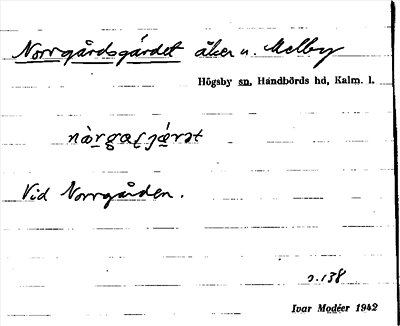 Norrgårdsgärdet åker u. Melby
Högsby sn, Handbörds hd, Kalm. l.
Vid Norrgården.
s. 138
Ivar Modéer 1942